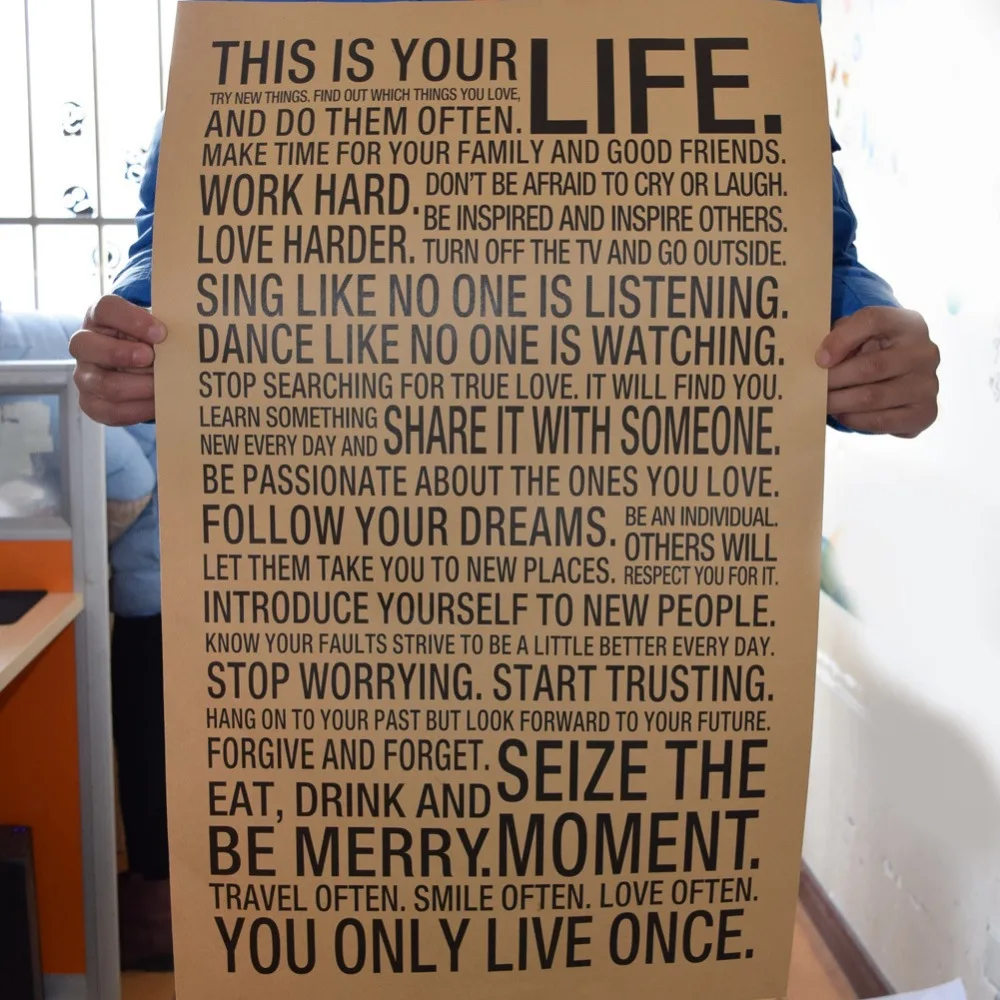 THIS IS YOUR LIFE.
TRY NEW THINGS. FIND OUT WHICH THINGS YOU LOVE,
AND DO THEM OFTEN.
MAKE TIME FOR YOUR FAMILY AND GOOD FRIENDS.
WORK HARD.
LOVE HARDER.
DON'T BE AFRAID TO CRY OR LAUGH.
BE INSPIRED AND INSPIRE OTHERS.
TURN OFF THE TV AND GO OUTSIDE.
SING LIKE NO ONE IS LISTENING.
DANCE LIKE NO ONE IS WATCHING.
STOP SEARCHING FOR TRUE LOVE. IT WILL FIND YOU.
LEARN SOMETHING
NEW EVERY DAY AND
SHARE IT WITH SOMEONE.
BE PASSIONATE ABOUT THE ONES YOU LOVE.
FOLLOW YOUR DREAMS.
LET THEM TAKE YOU TO NEW PLACES.
BE AN INDIVIDUAL.
OTHERS WILL
RESPECT YOU FOR IT.
INTRODUCE YOURSELF TO NEW PEOPLE.
KNOW YOUR FAULTS STRIVE TO BE A LITTLE BETTER EVERY DAY.
STOP WORRYING. START TRUSTING.
HANG ON TO YOUR PAST BUT LOOK FORWARD TO YOUR FUTURE.
FORGIVE AND FORGET.
EAT, DRINK AND
BE MERRY.
SEIZE THE
MOMENT.
TRAVEL OFTEN. SMILE OFTEN. LOVE OFTEN.
YOU ONLY LIVE ONCE.